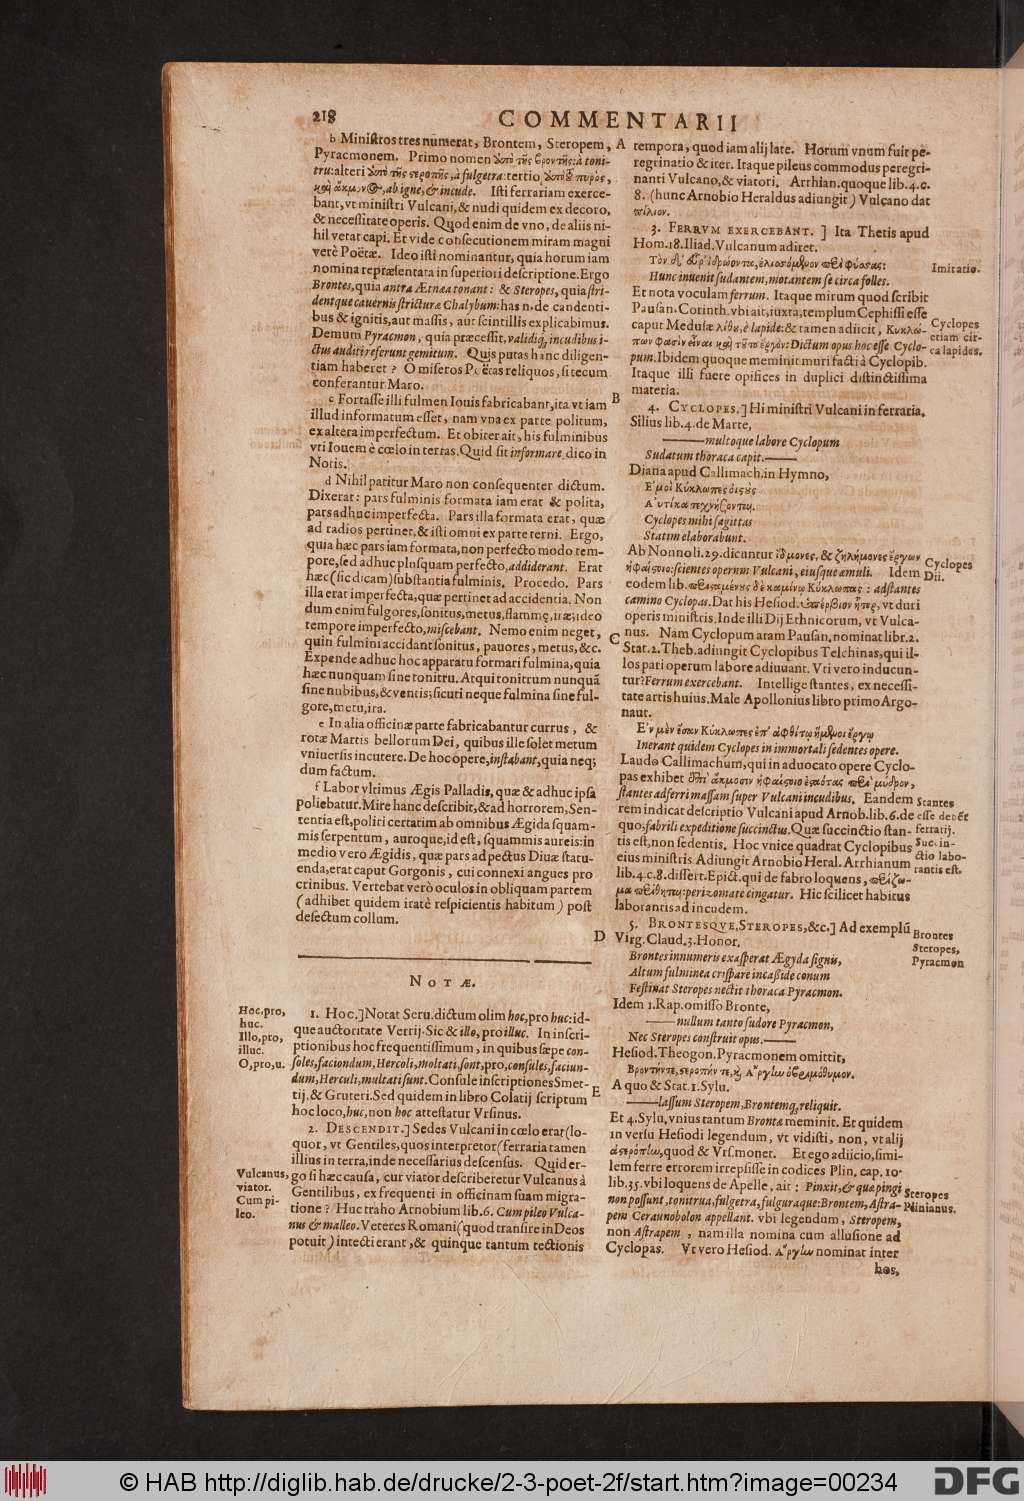 218
COMMENTARII
b Ministros tres numerat, Brontem, Steropem,
Pyracmonem. Primo nomen ὑπὸ τῆς βροντῆς: à toni-
tru: alteri ὑπὸ τῆς στεροπῆς, à fulgetra: tertio, ὑπὸ τοῦ πυρὸς,
καὶ ἄκμονος, ab igne, & incude. Isti ferrariam exerce-
bant, vt ministri Vulcani, & nudi quidem ex decoro,
& necessitate operis. Quod enim de vno, de aliis ni-
hil vetat capi. Et vide consecutionem miram magni
verè Poëtæ. Ideo isti nominantur, quia horum iam
nomina repræsentata in superiori descriptione. Ergo
Brontes, quia antra Ætnæa tonant: & Steropes, quia stri-
dentque cauernis stricturæ Chalybum: has n. de candenti-
bus & ignitis, aut massis, aut scintillis explicabimus.
Demum Pyracmon, quia præcessit, validiq; incudibus i-
ctus auditi referunt gemitum. Quis putas hanc diligen-
tiam haberet? O miseros Poëtas reliquos, si tecum
conferantur Maro.
c Fortasse illi fulmen Iouis fabricabant, ita vt iam
illud informatum esset, nam vna ex parte politum,
ex altera imperfectum. Et obiter ait, his fulminibus
vti Iouem è cœlo in terras. Quid sit informare, dico in
Notis.
d Nihil patitur Maro non consequenter dictum.
Dixerat: pars fulminis formata iam erat & polita,
pars adhuc imperfecta. Pars illa formata erat, quæ
ad radios pertinet, & isti omni ex parte terni. Ergo,
quia hæc pars iam formata, non perfecto modo tem-
pore, sed adhuc plusquam perfecto, addiderant. Erat
hæc (sic dicam) substantia fulminis. Procedo. Pars
illa erat imperfecta, quæ pertinet ad accidentia. Non
dum enim fulgores, sonitus, metus, flammę, iræ; ideo
tempore imperfecto, miscebant. Nemo enim neget,
quin fulmini accidant sonitus, pauores, metus, &c.
Expende adhuc hoc apparatu formari fulmina, quia
hæc nunquam sine tonitru. Atqui tonitrum nunquã
sine nubibus, & ventis; sicuti neque fulmina sine ful-
gore, metu, ira.
e In alia officinæ parte fabricabantur currus, &
rotæ Martis bellorum Dei, quibus ille solet metum
vniuersis incutere. De hoc opere, instabant, quia neq;
dum factum.
f Labor vltimus Ægis Palladis, quæ & adhuc ipsa
poliebatur. Mire hanc describit, & ad horrorem, Sen-
tentia est, politi certatim ab omnibus Ægida squam-
mis serpentum, auroque, id est, squammis aureis: in
medio vero Ægidis, quæ pars ad pectus Diuæ statu-
enda, erat caput Gorgonis, cui connexi angues pro
crinibus. Vertebat verò oculos in obliquam partem
(adhibet quidem iratè respicientis habitum) post
desectum collum.
NOTÆ.
Hoc, pro,
huc.
Illo, pro,
illuc.
O, pro, u.
1. Hoc.] Notat Seru. dictum olim hoc, pro huc: id-
que auctoritate Verrij. Sic & illo, pro illuc. In inscri-
ptionibus hoc frequentissimum, in quibus sæpe con-
soles, faciondum, Hercoli, moltati, sont, pro, consules, faciun-
dum, Herculi, multati sunt. Consule inscriptiones Smet-
tij. & Gruteri. Sed quidem in libro Colatij scriptum
hoc loco, huc, non hoc attestatur Vrsinus.
2. DESCENDIT.] Sedes Vulcani in cœlo erat (lo-
quor, vt Gentiles, quos interpretor (ferraria tamen
illius in terra, inde necessarius descensus. Quid er-
go si hæc causa, cur viator describeretur Vulcanus à
Gentilibus, ex frequenti in officinam suam migra-
tione? Huc traho Arnobium lib. 6. Cum pileo Vulca-
nus & malleo. Veteres Romani (quod transire in Deos
potuit) intecti erant, & quinque tantum tectionis
Vulcanus,
viator.
Cum pi-
leo.
A
B
C
D
E
tempora, quod iam alij late. Horum vnum fuit pe-
regrinatio & iter. Itaque pileus commodus peregri-
nanti Vulcano, & viatori. Arrhian. quoque lib. 4. c.
8. (hunc Arnobio Heraldus adiungit) Vulcano dat
πίλιον.
3. FERRVM EXERCEBANT.] Ita Thetis apud
Hom. 18. Iliad. Vulcanum adiret.
Τὸν δ' εὗρ' ἱδρώοντα, ἑλισσόμενον περὶ φύσας:
Hunc inuenit sudantem, motantem se circa folles.
Et nota voculam ferrum. Itaque mirum quod scribit
Pausan. Corinth. vbi ait, iuxta, templum Cephissi esse
caput Medusæ λίθου, è lapide: & tamen adiicit, Κυκλώ-
πων φασὶν εἶναι καὶ τοῦτο ἔργον: Dictum opus hoc esse Cyclo-
pum. Ibidem quoque meminit muri facti à Cyclopib.
Itaque illi fuere opifices in duplici distinctissima
materia.
4. CYCLOPES.] Hi ministri Vulcani in ferraria.
Silius lib. 4. de Marte,
—— multoque labore Cyclopum
Sudatum thoraca capit. ——
Diana apud Callimach. in Hymno,
Ἐμοὶ Κύκλωπες ὀϊστοὺς
Αὐτίκα τεχνήσονται.
Cyclopes mihi sagittas
Statim elaborabunt.
Ab Nonno li. 29. dicuntur ἴδμονες, & ζηλήμονες ἔργων
ἡφαίστοιο: scientes operum Vulcani, eiusque æmuli. Idem
eodem lib. περισταμένους δὲ καμίνῳ Κύκλωπας: adstantes
camino Cyclopas. Dat his Hesiod. ὑπέρβιον ἦτορ, vt duri
operis ministris. Inde illi Dij Ethnicorum, vt Vulca-
nus. Nam Cyclopum aram Pausan. nominat libr. 2.
Stat. 2. Theb. adiungit Cyclopibus Telchinas, qui il-
los pati operum labore adiuuant. Vti vero inducun-
tur? Ferrum exercebant. Intellige stantes, ex necessi-
tate artis huius. Male Apollonius libro primo Argo-
naut.
Ἐν μὲν ἔσαν Κύκλωπες ἐπ' ἀφθίτῳ ἥμενοι ἔργῳ
Inerant quidem Cyclopes in immortali sedentes opere.
Laudo Callimachum, qui in aduocato opere Cyclo-
pas exhibet ἐπ' ἄκμοσιν ἡφαίστοιο ἑσταότας περὶ μύδρον,
stantes ad ferri massam super Vulcani incudibus. Eandem
rem indicat descriptio Vulcani apud Arnob. lib. 6. de
quo; fabrili expeditione succinctus. Quæ succinctio stan-
tis est, non sedentis. Hoc vnice quadrat Cyclopibus
eius ministris. Adiungit Arnobio Heral. Arrhianum
lib. 4. c. 8. dissert. Epict. qui de fabro loquens, περίζω-
μα περίθηται: perizomate cingatur. Hic scilicet habitus
laborantis ad incudem.
5. BRONTESQVE, STEROPES, &c.] Ad exemplũ
Virg. Claud. 3. Honor.
Brontes innumeris exasperat Ægyda signis,
Altum fulminea crispare in casside conum
Festinat Steropes nectit thoraca Pyracmon.
Idem 1. Rap. omisso Bronte,
—— nullum tanto sudore Pyracmon,
Nec Steropes construit opus. ——
Hesiod. Theogon. Pyracmonem omittit,
Βροντήν τε, στερόπην τε, καὶ Ἄργην ὀβριμόθυμον.
A quo & Stat. 1. Sylu.
—— lassum Steropem, Brontemq; reliquit.
Et 4. Sylu. vnius tantum Brontæ meminit. Et quidem
in versu Hesiodi legendum, vt vidisti, non, vt alij
ἀστερόπην, quod & Vrs. monet. Et ego adiicio, simi-
lem ferre errorem irrepsisse in codices Plin. cap. 10.
lib. 35. vbi loquens de Apelle, ait: Pinxit, & quæ pingi
non possunt, tonitrua, fulgetra, fulguraque: Brontem, Astra-
pem Ceraunobolon appellant. vbi legendum, Steropem,
non Astrapem, nam illa nomina cum allusione ad
Cyclopas. Vt vero Hesiod. Ἄργην nominat inter
hos,
Imitatio.
Cyclopes
etiam cir-
ca lapides.
Cyclopes
Dii.
Stantes
esse debet
ferrarij.
Succin-
ctio labo-
rantis est.
Brontes
Steropes,
Pyracmon
Steropes
Plinianus.
© HAB http://diglib.hab.de/drucke/2-3-poet-2f/start.htm?image=00234
DFG